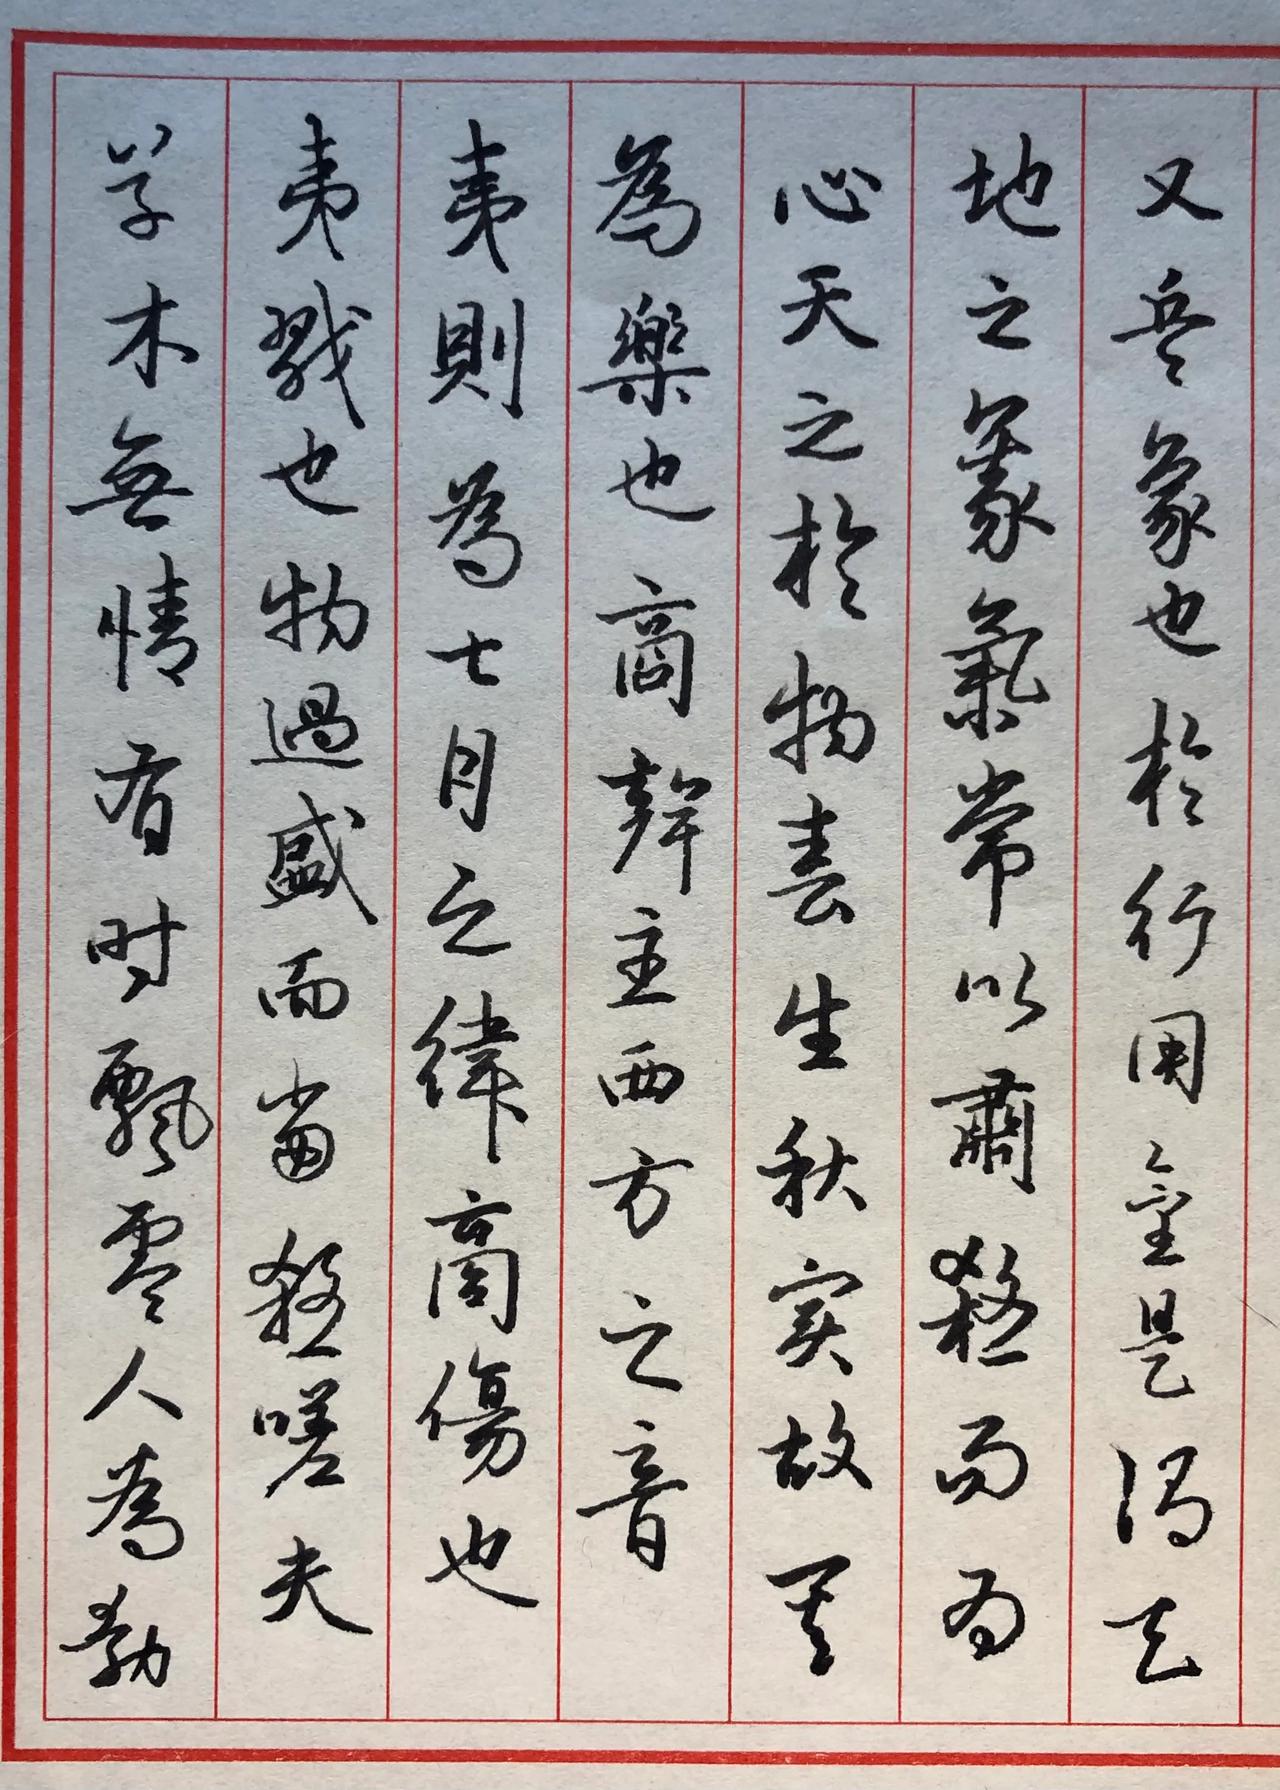 又兵象也於行用金是謂天
地之義氣常以肅殺而為
心天之於物春生秋实故其
為樂也商聲主西方之音
夷則為七月之律商傷也
夷戮也物過盛而當殺嗟夫
草木無情有时飄零人為動